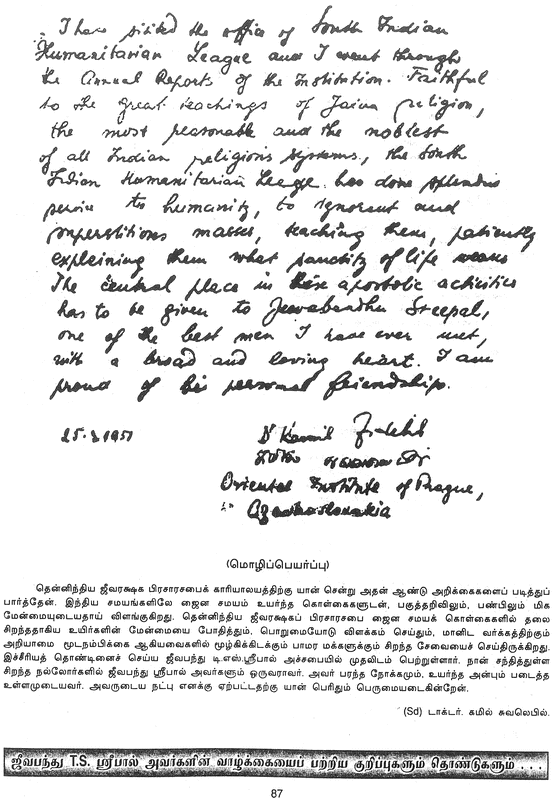 I have visited the office of South Indian
Humanitarian League and I went through
the Annual Reports of the Institution. Faithful
to the great teachings of Jaina religion,
the most reasonable and the noblest
of all Indian religions systems, the South
Indian Humanitarian League has done splendid
service to humanity, to ignorant and
superstitious masses, teaching them, patiently
explaining them what sanctity of life means
The central place in these apostolic activities
has to be given to Jeevabandhu Sreepal,
one of the best men I have ever met,
with a broad and loving heart. I am
proud of his personal friendship.
25-3-1957
Dr Kamil
Oriental Institute of Prague,
Czechoslovakia
(மொழிப்பெயர்ப்பு)
தென்னிந்திய ஜீவரக்ஷக பிரசாரசபைக் காரியாலயத்திற்கு யான் சென்று அதன் ஆண்டு அறிக்கைகளைப் படித்துப்
பார்த்தேன். இந்திய சமயங்களிலே ஜைன சமயம் உயர்ந்த கொள்கைகளுடன், பகுத்தறிவிலும், பண்பிலும் மிக
மேன்மையுடையதாய் விளங்குகிறது. தென்னிந்திய ஜீவரக்ஷகப் பிரசாரசபை ஜைன சமயக் கொள்கைகளில் தலை
சிறந்ததாகிய உயிர்களின் மேன்மையை போதித்தும், பொறுமையோடு விளக்கம் செய்தும், மானிட வர்க்கத்திற்கும்
அறியாமை மூடநம்பிக்கை ஆகியவைகளில் மூழ்கிக்கிடக்கும் பாமர மக்களுக்கும் சிறந்த சேவையைச் செய்திருக்கிறது.
இச்சீரியத் தொண்டினைச் செய்ய ஜீவபந்து டி.எஸ்.ஸ்ரீபால் அச்சபையில் முதலிடம் பெற்றுள்ளார். நான் சந்தித்துள்ள
சிறந்த நல்லோர்களில் ஜீவபந்து ஸ்ரீபால் அவர்களும் ஒருவராவர். அவர் பரந்த நோக்கமும், உயர்ந்த அன்பும் படைத்த
உள்ளமுடையவர். அவருடைய நட்பு எனக்கு ஏற்பட்டதற்கு யான் பெரிதும் பெருமையடைகின்றேன்.
(Sd) டாக்டர். கமில் சுவலெபில்.
ஜீவபந்து T.S. ஸ்ரீபால் அவர்களின் வாழ்க்கையைப் பற்றிய குறிப்புகளும் தொண்டுகளும் . . .
87